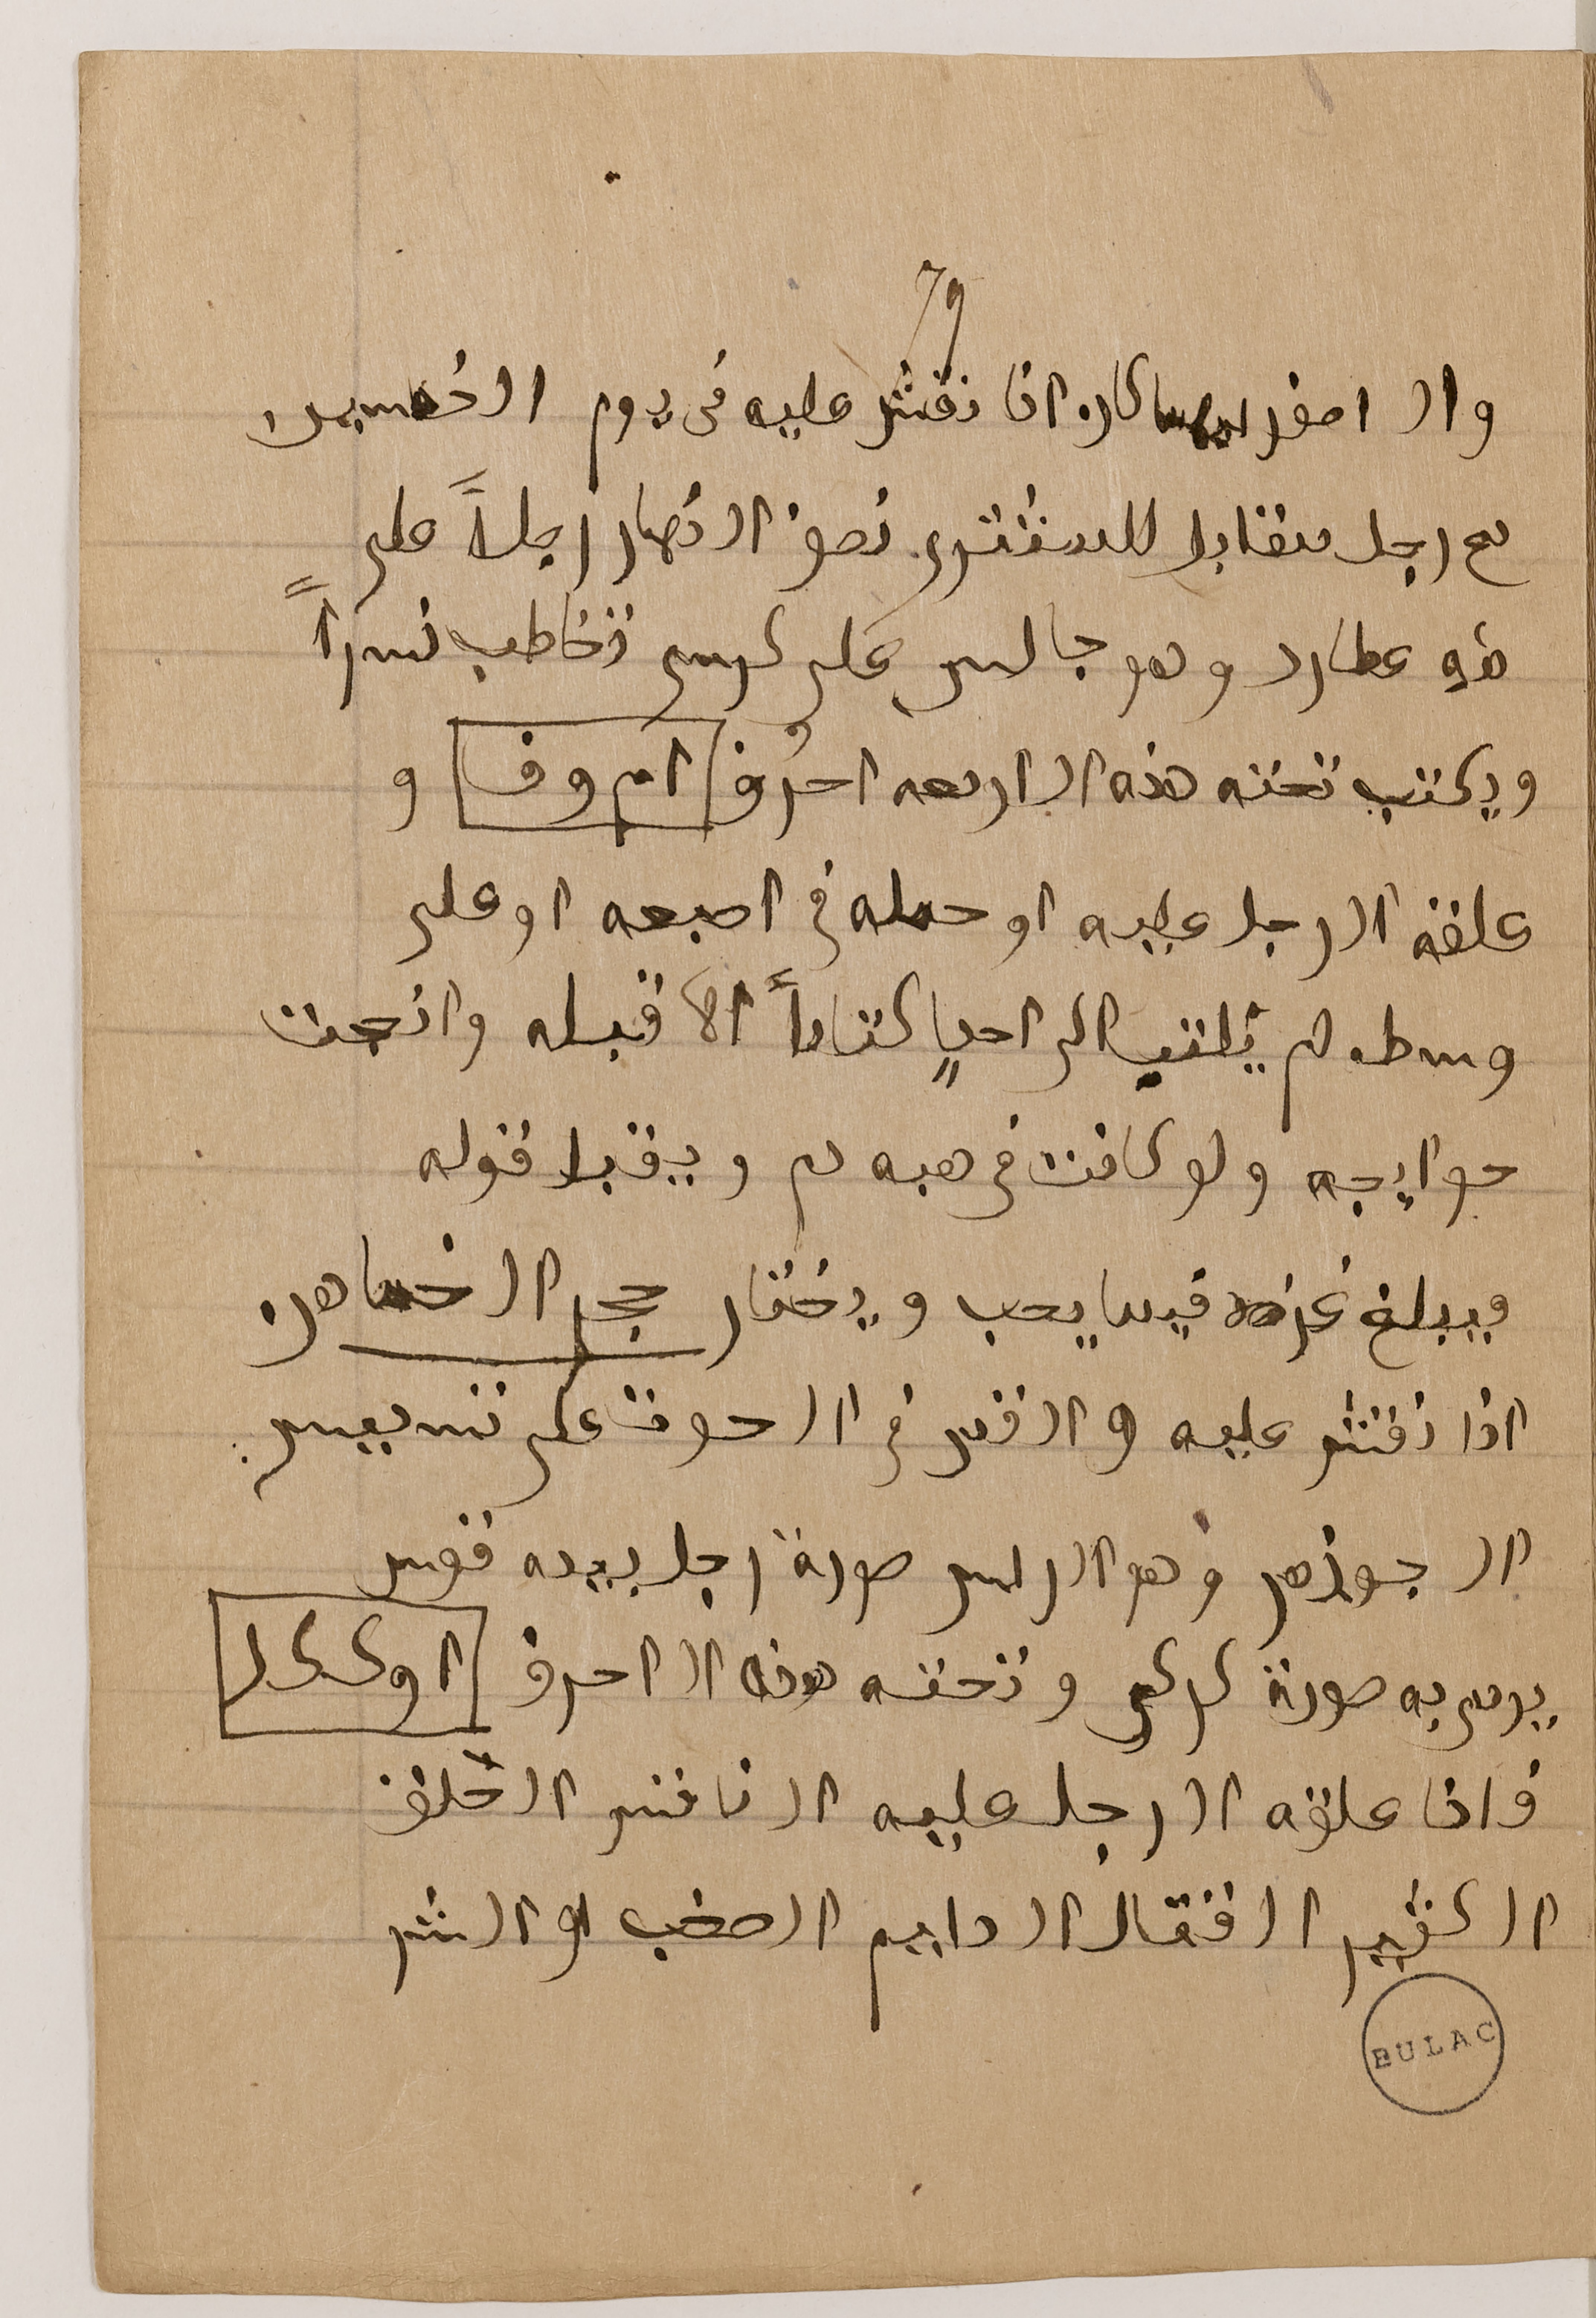 79
والاصفر اذا نقش عليه في يوم الخميس
مع رجل مقابل للمشتري نصف النهار رجلاً على
هيه عطارد وهو جالس على كرسي تخاطب نسراً
ويكتب تحته هذه الاربعه احرُف ا م و ف و
علقه الرجل عليه او حمله في اصبعه او على
وسطه لم يكتب الى احدٍ كتاباً الا قبله وانجحت
حوايجه ولو كانت في هبه دم ويقبل قوله
ويبلغ غرضه فيما يحب ويختار حجر الخماهن
اذا نقش عليه والقمر في الحوت على تسديس
الجوزهر وهو الراس صورة رجل بيده قوس
يرمي به صورة كركي وتحته هذه الاحرف ا و ك ك ل
فاذا علقه الرجل عليه الناقس الخلق
الكثير القتال الدايم الصخب او الشر
BULAC